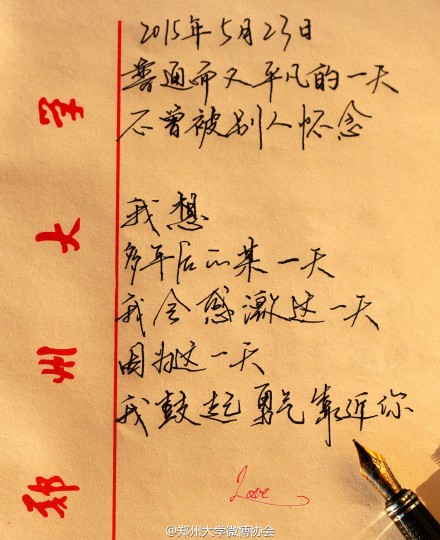 2015年5月23日
普通而又平凡的一天
不曾被别人怀念
我想
多年后的某一天
我会感激这一天
因为这一天
我鼓起勇气靠近你
Love
郑州大学
@郑州大学微博协会